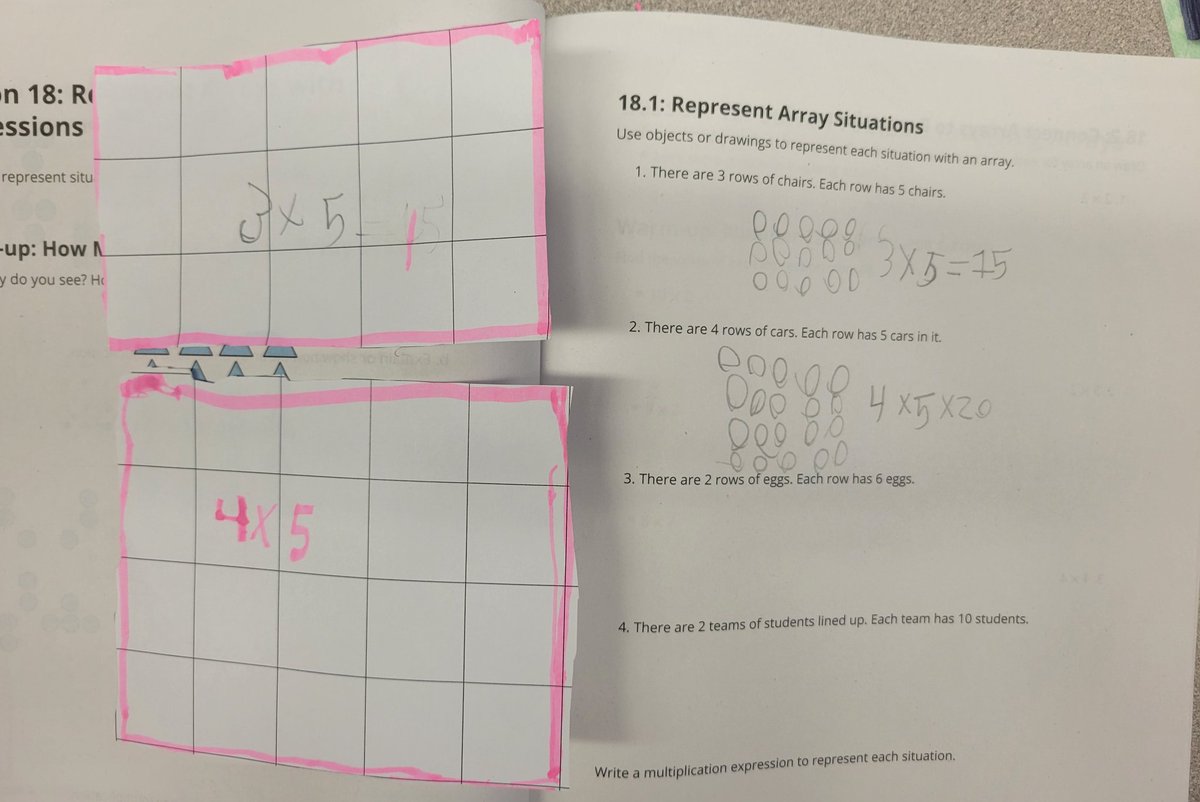 on 18: Re
essions
represent situ
-up: How M
y do you see? Ho
3 x 5 = 15
4 x 5
18.1: Represent Array Situations
Use objects or drawings to represent each situation with an array.
1. There are 3 rows of chairs. Each row has 5 chairs.
3 x 5 = 15
2. There are 4 rows of cars. Each row has 5 cars in it.
4 x 5 x 20
3. There are 2 rows of eggs. Each row has 6 eggs.
4. There are 2 teams of students lined up. Each team has 10 students.
Write a multiplication expression to represent each situation.